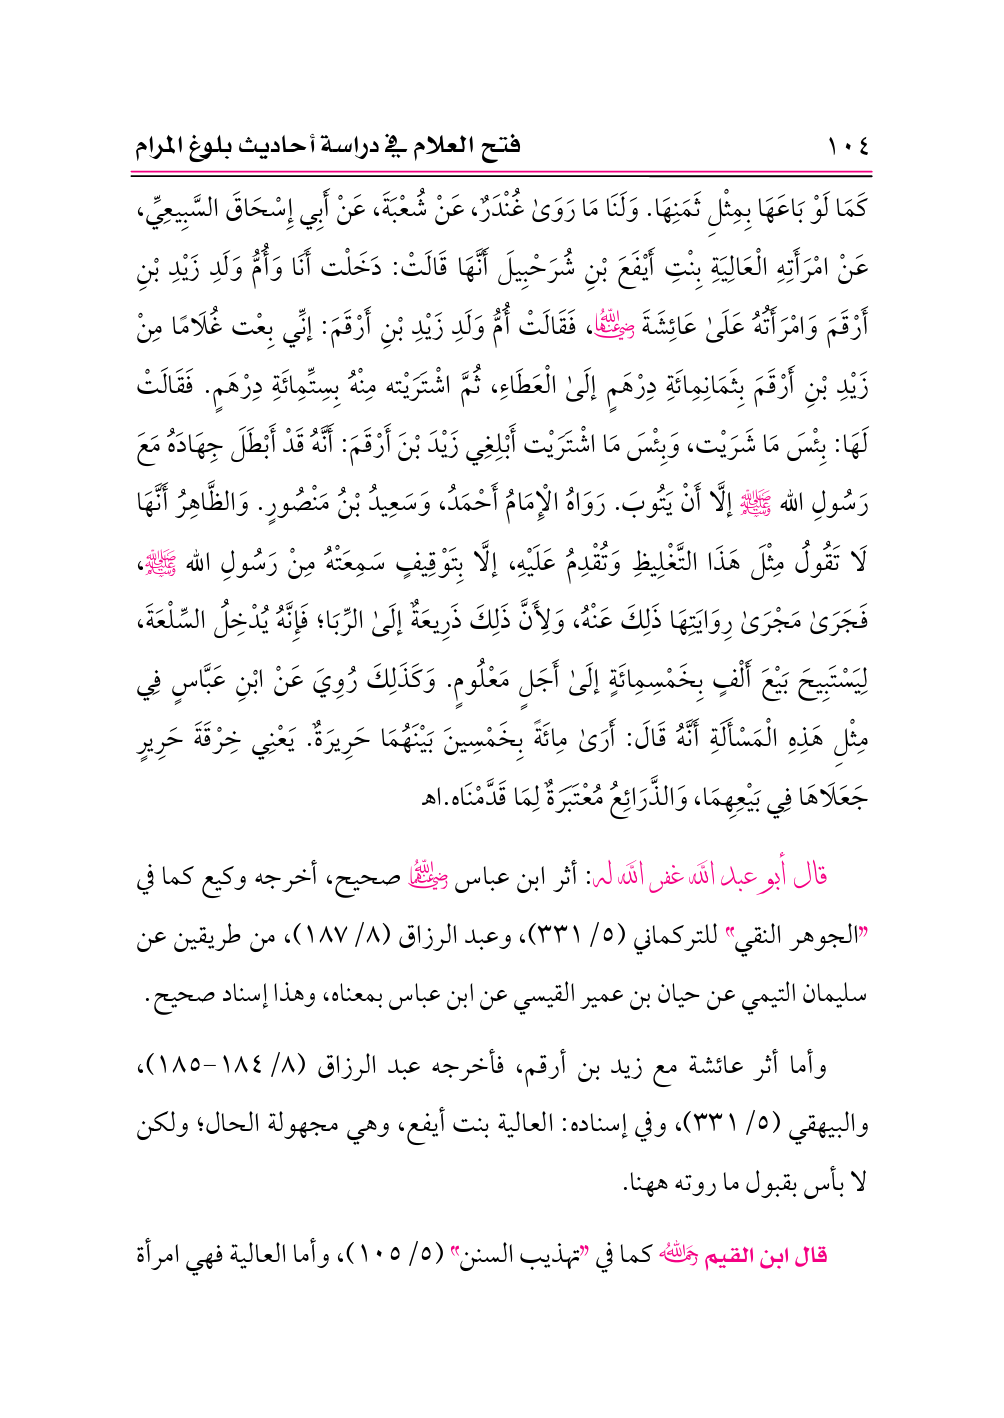 ١٠٤ فتح العلام في دراسة أحاديث بلوغ المرام
كَمَا لَوْ بَاعَهَا بِمِثْلِ ثَمَنِهَا. وَلَنَا مَا رَوَىٰ غُنْدَرٌ، عَنْ شُعْبَةَ، عَنْ أَبِي إِسْحَاقَ السَّبِيعِيِّ،
عَنْ امْرَأَتِهِ الْعَالِيَةِ بِنْتِ أَيْفَعَ بْنِ شُرَحْبِيلَ أَنَّهَا قَالَتْ: دَخَلْت أَنَا وَأُمُّ وَلَدِ زَيْدِ بْنِ
أَرْقَمَ وَامْرَأَتُهُ عَلَىٰ عَائِشَةَ رضي الله عنها، فَقَالَتْ أُمُّ وَلَدِ زَيْدِ بْنِ أَرْقَمَ: إنِّي بِعْت غُلَامًا مِنْ
زَيْدِ بْنِ أَرْقَمَ بِثَمَانِمِائَةِ دِرْهَمٍ إلَىٰ الْعَطَاءِ، ثُمَّ اشْتَرَيْته مِنْهُ بِسِتِّمِائَةِ دِرْهَمٍ. فَقَالَتْ
لَهَا: بِئْسَ مَا شَرَيْت، وَبِئْسَ مَا اشْتَرَيْت أَبْلِغِي زَيْدَ بْنَ أَرْقَمَ: أَنَّهُ قَدْ أَبْطَلَ جِهَادَهُ مَعَ
رَسُولِ الله ﷺ إلَّا أَنْ يَتُوبَ. رَوَاهُ الْإِمَامُ أَحْمَدُ، وَسَعِيدُ بْنُ مَنْصُورٍ. وَالظَّاهِرُ أَنَّهَا
لَا تَقُولُ مِثْلَ هَذَا التَّغْلِيظِ وَتُقْدِمُ عَلَيْهِ، إلَّا بِتَوْقِيفٍ سَمِعَتْهُ مِنْ رَسُولِ الله ﷺ،
فَجَرَىٰ مَجْرَىٰ رِوَايَتِهَا ذَلِكَ عَنْهُ، وَلِأَنَّ ذَلِكَ ذَرِيعَةٌ إلَىٰ الرِّبَا؛ فَإِنَّهُ يُدْخِلُ السِّلْعَةَ،
لِيَسْتَبِيحَ بَيْعَ أَلْفٍ بِخَمْسِمِائَةٍ إلَىٰ أَجَلٍ مَعْلُومٍ. وَكَذَلِكَ رُوِيَ عَنْ ابْنِ عَبَّاسٍ فِي
مِثْلِ هَذِهِ الْمَسْأَلَةِ أَنَّهُ قَالَ: أَرَىٰ مِائَةً بِخَمْسِينَ بَيْنَهُمَا حَرِيرَةٌ. يَعْنِي خِرْقَةَ حَرِيرٍ
جَعَلَاهَا فِي بَيْعِهِمَا، وَالذَّرَائِعُ مُعْتَبَرَةٌ لِمَا قَدَّمْنَاه.اهـ
قال أبو عبد الله غفر الله له: أثر ابن عباس رضي الله عنهما صحيح، أخرجه وكيع كما في
"الجوهر النقي" للتركماني (٥/ ٣٣١)، وعبد الرزاق (٨/ ١٨٧)، من طريقين عن
سليمان التيمي عن حيان بن عمير القيسي عن ابن عباس بمعناه، وهذا إسناد صحيح.
وأما أثر عائشة مع زيد بن أرقم، فأخرجه عبد الرزاق (٨/ ١٨٤-١٨٥)،
والبيهقي (٥/ ٣٣١)، وفي إسناده: العالية بنت أيفع، وهي مجهولة الحال؛ ولكن
لا بأس بقبول ما روته ههنا.
قال ابن القيم رحمه الله كما في "تهذيب السنن" (٥/ ١٠٥)، وأما العالية فهي امرأة